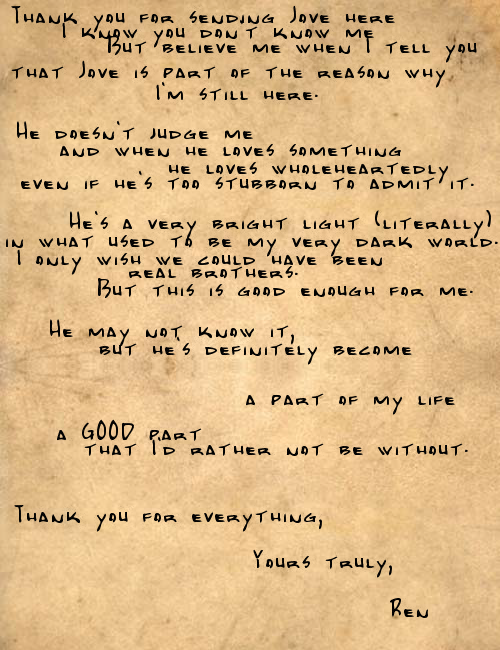 Thank you for sending Jove here
I know you don't know me
But believe me when I tell you
that Jove is part of the reason why
I'm still here.
He doesn't judge me
and when he loves something
he loves wholeheartedly
even if he's too stubborn to admit it.
He's a very bright light (literally)
in what used to be my very dark world.
I only wish we could have been
real brothers.
But this is good enough for me.
He may not know it,
but he's definitely become
a part of my life
a GOOD part
that I'd rather not be without.
Thank you for everything,
Yours truly,
Ben